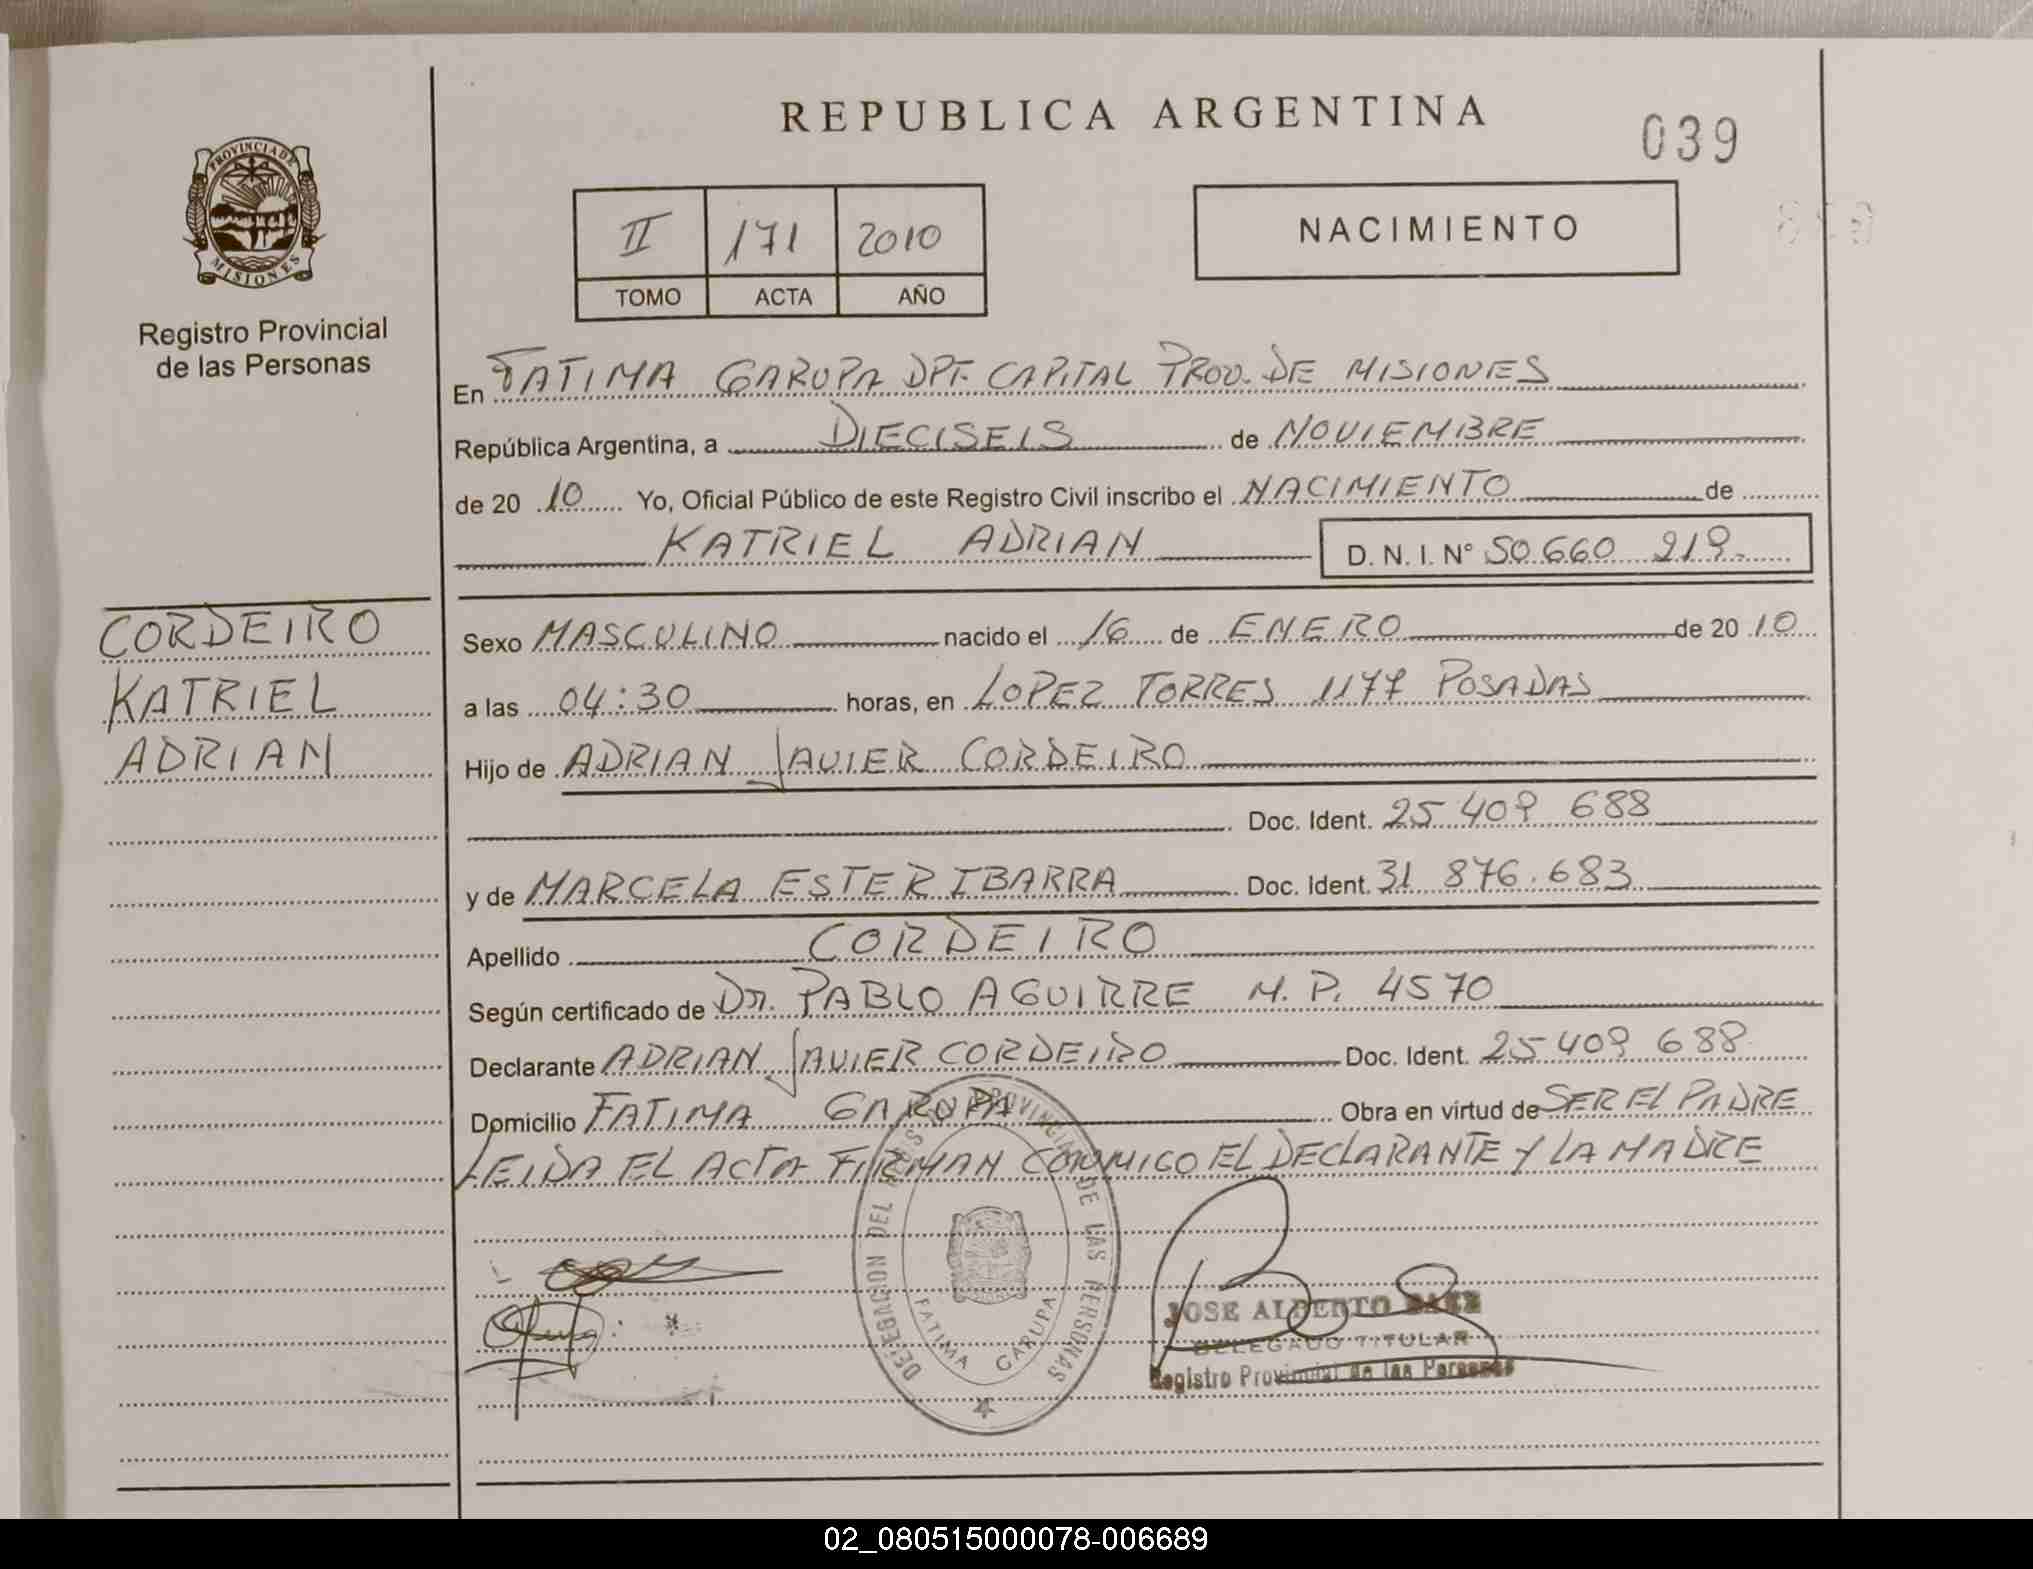 REPUBLICA ARGENTINA
039
PROVINCIA DE
MISIONES
Registro Provincial
de las Personas
II 171 2010
TOMO ACTA AÑO
NACIMIENTO
En FATIMA GARUPA DPT. CAPITAL PROV. DE MISIONES
República Argentina, a DIECISEIS de NOVIEMBRE
de 20 10 Yo, Oficial Público de este Registro Civil inscribo el NACIMIENTO de
KATRIEL ADRIAN D. N. I. N° 50.660 219
CORDEIRO
KATRIEL
ADRIAN
Sexo MASCULINO nacido el 16 de ENERO de 20 10
a las 04:30 horas, en LOPEZ TORRES 1177 POSADAS
Hijo de ADRIAN JAVIER CORDEIRO
Doc. Ident. 25 409 688
y de MARCELA ESTER IBARRA Doc. Ident. 31 876.683
Apellido CORDEIRO
Según certificado de Dr. PABLO AGUIRRE M.P. 4570
Declarante ADRIAN JAVIER CORDEIRO Doc. Ident. 25 409 688
Domicilio FATIMA GARUPA Obra en virtud de SER EL PADRE
LEIDA EL ACTA FIRMAN CONMIGO EL DECLARANTE Y LA MADRE
DELEGACION DEL REGISTRO PROVINCIAL DE LAS PERSONAS
FATIMA GARUPA
JOSE ALBERTO BAEZ
DELEGADO TITULAR
Registro Provincial de las Personas
02_080515000078-006689